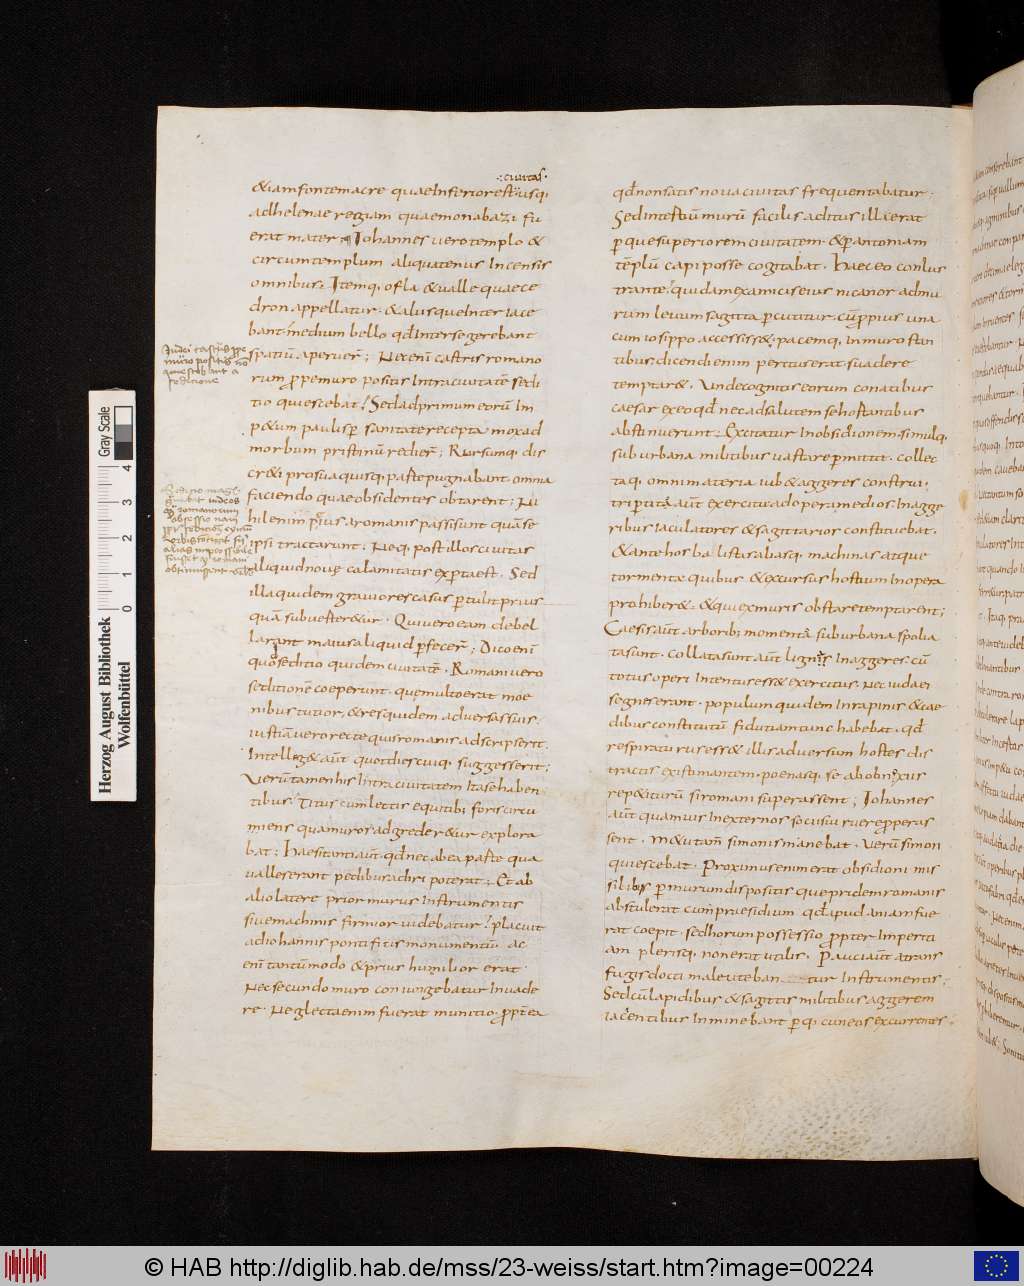 ·:cuitas·
&iam fontem acre quae inferior est usqi
ad helenae regiam quae monabazi fu
erat mater; Iohannes uero templo &
circum templum aliquatenus Incensis
omnibus. Itemq; ofla & ualle quae ce
dron appellatur. & aliusque Inter iace
bant medium bello qd Inter se gerebant
spatiũ aperuer̄; Nec enī castris romano
rum ppe muro positis Intra ciuitatē sedi
tio quiescebat. Sed ad primum eorũ Im
p&um paulisp sanitate recepta mox ad
morbum pristinũ redier̄; Rursumq; dis
cr&i pro sua quisq; parte pugnabant. omnia
faciendo quae obsidentes obtarent; Ni
hil enim prius a romanis passi sunt quā se
ipsi tractarunt. Neq; post illos ciuitas
aliquid nouę calamitatis experta est. Sed
illa quidem grauiores casus pertulit prius
quā subuerter&ur. Qui uero eam debel
larant maius aliquid pfecer̄; Dico enī
quod seditio quidem ciuitatē. Romani uero
seditionē coeperunt. que multo erat moe
nibus tutior, & res quidem aduersas suis.
iustitiā uero recte quis romanis adscripserit.
Intelleg& aut̄ quot dies cuiq; suggesserit;
Uerũtamen his Intra ciuitatem Ita se haben
tibus. Titus cum lectis equitib; foris circu
miens qua muros adgreder&ur explora
bat; Haesitanti aut̄ qd nec ab ea parte qua
ualles erant pedibus adiri poterat. Et ab
alio latere prior murus Instrumentis
siue machinis firmior uidebatur. placuit
ad iohannis pontificis monumentũ. ac
enī tantũmodo & prius humilior erat
Nec secundo muro coniungebatur Inuade
re. Neglecta enim fuerat munitio. ppt̄ea
qd non satis noua ciuitas frequentabatur;
Sed inter tertiũ murũ facilis aditus illi erat
p que superiorem ciuitatem. & p antoniam
tēplũ capi posse cogitabat. Haec eo conlus
trante. quidam ex amicis eius nicanor admu
rum leuum sagitta percutitur. cũ ppius una
cum iosippo accessiss&; pacemq; in muro stan
tibus. dicendi enim peritus erat. suadere
temptar&. Unde cognitis eorum conatibus
caesar ex eo qd nec ad salutem se hortantibus
abstinuerunt; Excitatur In obsidionem. simulq;
suburbana militibus uastare p mittit. Collec
taq; omni materia iub& aggeres construi.
tripertito aut̄ exercitu ad opera medios In agge
ribus Iaculatores & sagittarios constituebat.
& ante hos balistas aliasq; machinas atque
tormenta quibus & excursus hostium In opera
prohiber&. & qui ex muris obstare temptarent;
Caesis aut̄ arborib; momento suburbana spolia
ta sunt. Collatas sunt aut̄ lignis In aggeres cũ
totus operi Intentus ess& exercitus. Nec iudaei
segnes erant. populum quidem In rapinis & cae
dibus constitutũ fidutiam tunc habebat. qd
respiraturus ess& illis aduersum hostes dis
tractis existimantem. poenasq; se ab obnoxiis
rep&iturũ si romani superassent; Iohannes
aut̄ quamuis In externos socii sui ruere pperas
sent. m&u tam̄ simonis manebat. Uerũ simon
quiescebat. Proximus enim erat obsidioni mis
silibus p murum dispositis que pridem romanis
abstulerat cum praesidium qd apud aniam fue
rat coepit. sed horum possessio ppter Imperiti
am plerisq; non erat utilis. Pauci aut̄ a trans
fugis docti male uteban tur Instrumentis.
Sed cũ lapidibus & sagittis militibus aggerem
iacientibus Inminebant p q; cuneos excurrentes
Iudei castris ppe
muro positis nō
quiescebant a
seditione
Herzog August Bibliothek
Wolfenbüttel
0 1 2 3 4
Gray Scale
© HAB http://diglib.hab.de/mss/23-weiss/start.htm?image=00224